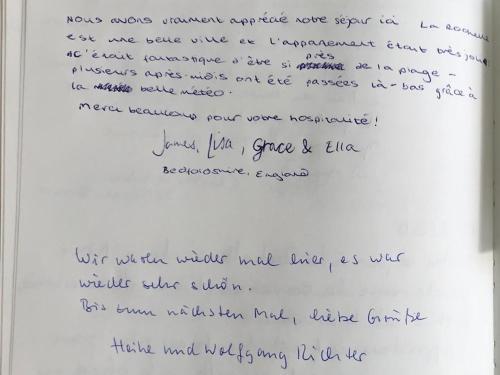 Nous avons vraiment apprécié notre séjour ici La Rochelle
est une belle ville et l'appartement était très joli
C'était fantastique d'être si près de la plage -
plusieurs après-midis ont été passées là-bas grâce à
la belle météo.
Merci beaucoup pour votre hospitalité!
James, Lisa, Grace & Ella
Bedfordshire, England
Wir waren wieder mal hier, es war
wieder sehr schön.
Bis zum nächsten Mal, liebe Grüße
Heike und Wolfgang Richter